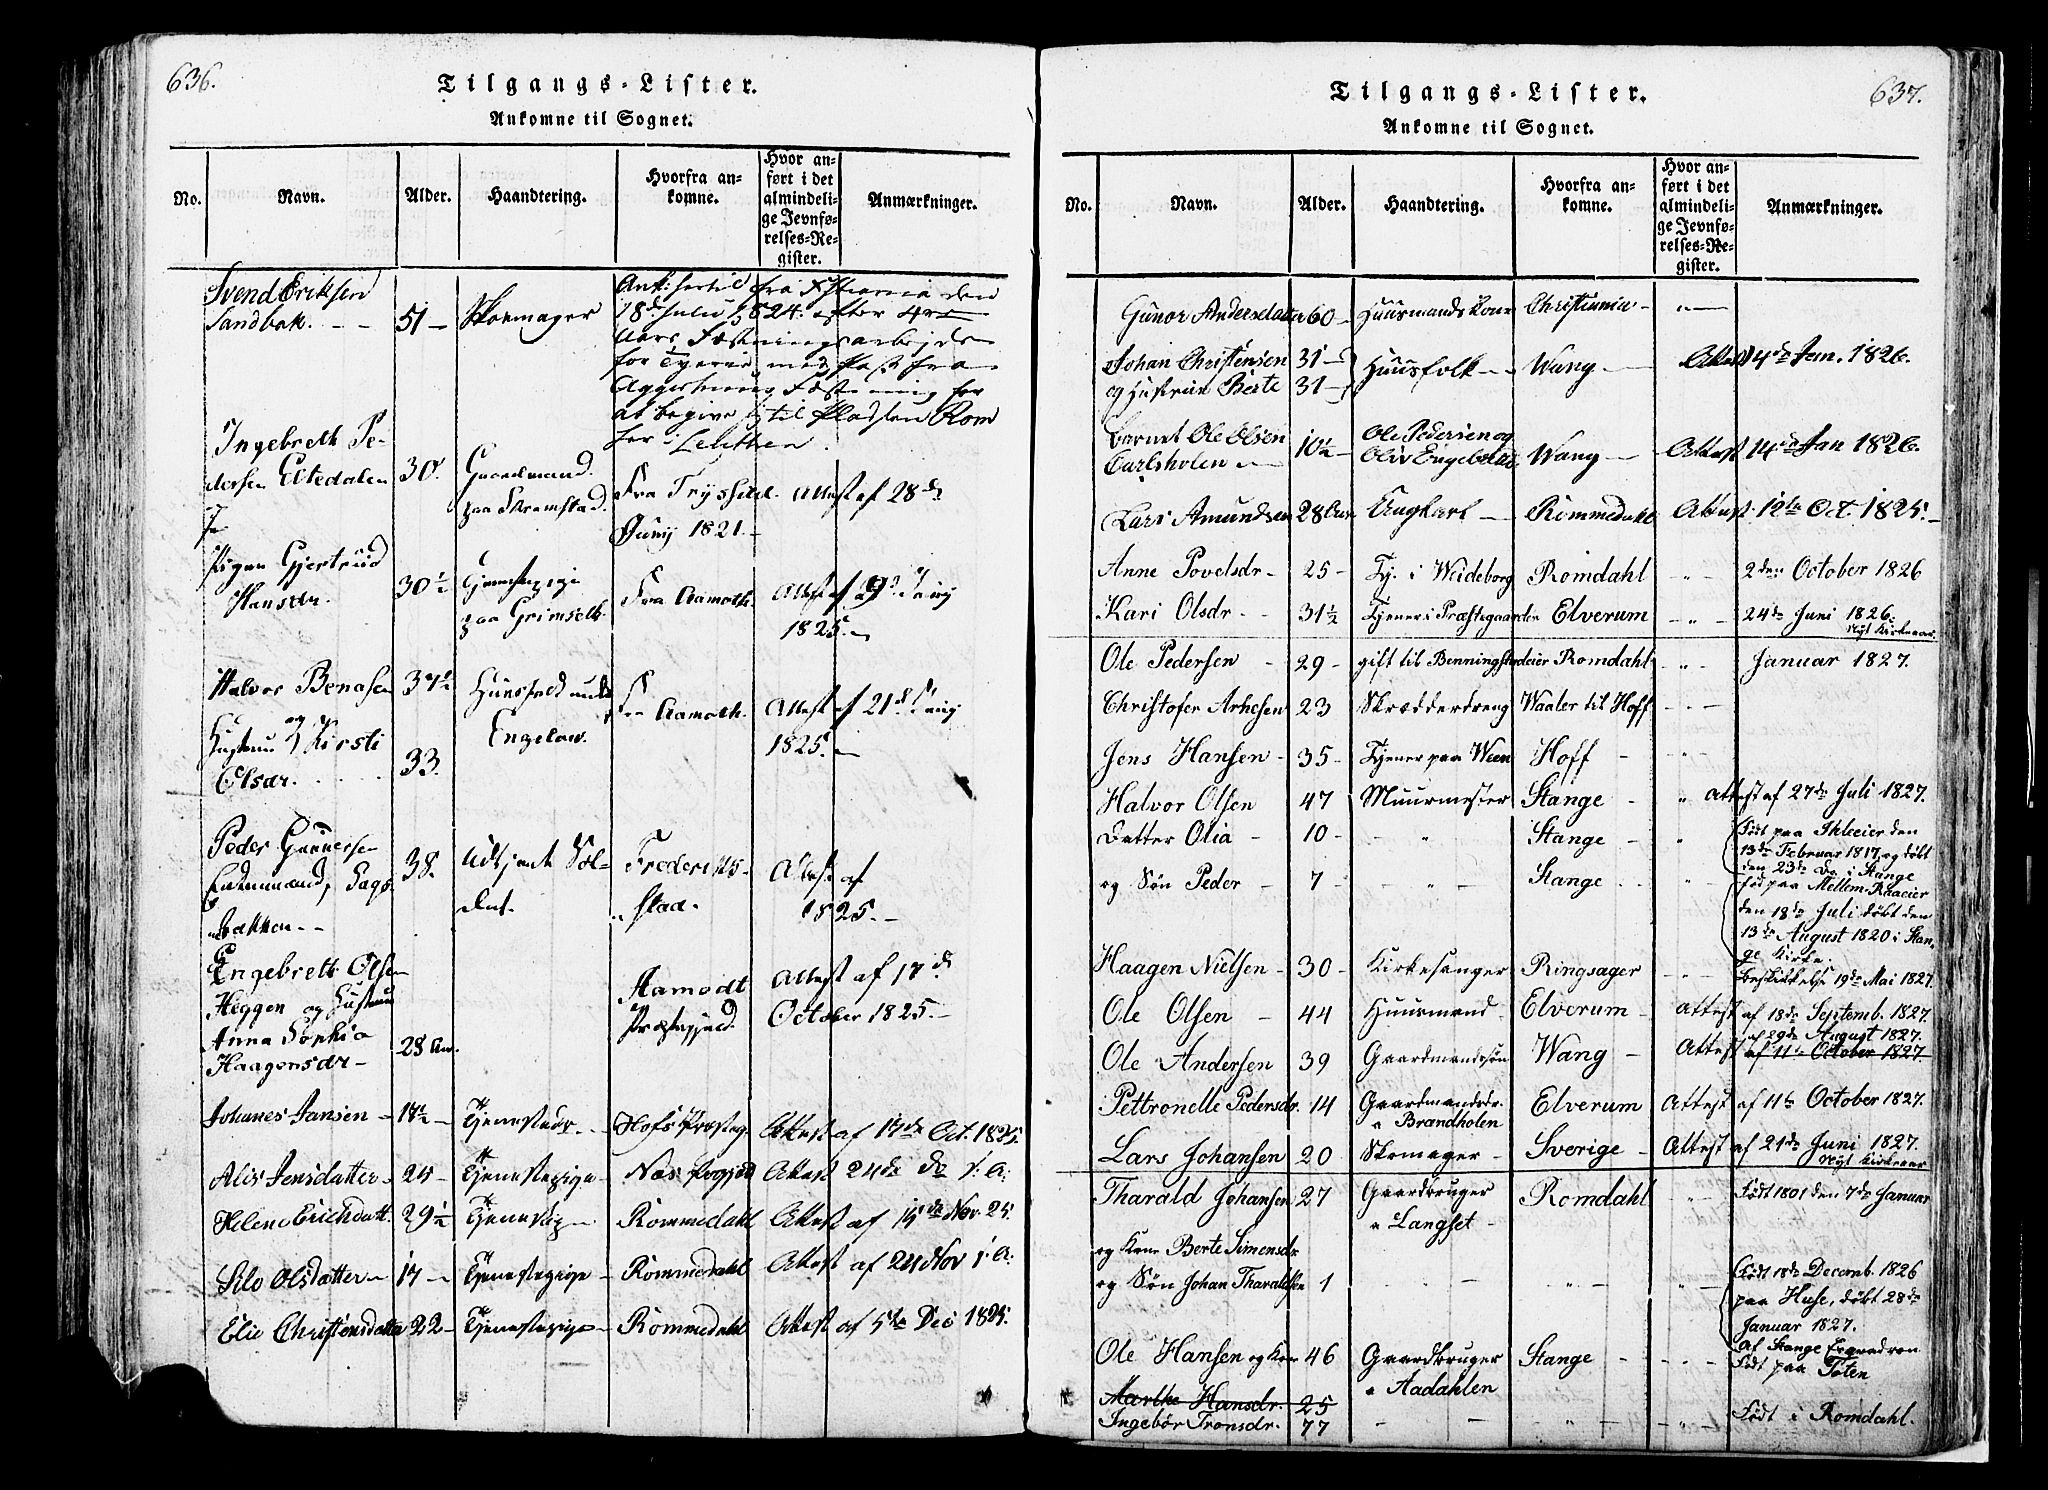 636.
Tilgangs-Lister.
Ankomne til Sognet.
No.
Navn.
Alder.
Haandtering.
Hvorfra an-
komne.
Hvor an-
ført i det
almindeli-
ge Jevnfø-
relses-Re-
gister.
Anmærkninger.
Svend Eriksen
Sandbak. 51 Skoemager
fra Christiania den
18de Julii 1824. efter 4re
Aars Fæstningsarbejde
for Tyverie, med Pas fra
Aggershuus Fæstning for
at begive sig til Pladsen Rom
her i Leuthen.
Ingebreth Pe-
dersen 30. Gaardmand
paa Skramstad. Fra Trysild. Attest af 28de
Juny 1821.
Pigen Gjertrud
Hansdr. 30½ Tjenestepige
paa Grimseth. Fra Aamoth. Attest af Juny
1825.
Halvor 37½ Huusfolk under
Engelaw. Fra Aamoth. Attest af 21de Juny
1825.
og
Hustrue Kirsti
Olsdr. 33.
Peder Gunnersen
38. Udtjent Sol-
dat. Frederiks-
stad. Attest af
1825.
bakken
Engebreth Olsen
Heggen og Hustrue
Anna Sophia
Haagensdr 28 Aar. Aamodt
Præstegjeld. Attest af 17de
October 1825.
Johanes Jansen 17½ Tjenestedr. Hofs Præsteg. Attest af 17de Oct. 1825.
Alis Jensdatter 25 Tjenestepige Næs Præstgjeld Attest 24de Do s: A:
Helene Erichsdatt. 29½ Tjenestepige Rommedahl Attest af 15de Nov 25.
Silo Olsdatter 17 Tjenestepige Rommedahl Attest af 24 Nov s: A:
Elie Christensdatter 22 Tjenestepige Rommedahl Attest af 5te Dec 1825.
637.
Tilgangs-Lister.
Ankomne til Sognet.
No.
Navn.
Alder.
Haandtering.
Hvorfra an-
komne.
Hvor an-
ført i det
almindeli-
ge Jevnfø-
relses-Re-
gister.
Anmærkninger.
Gunor Andersdatter 60 Huusmands Kone Christiania
Johan Christensen 31
og Hustrue Berte 31 Huusfolk Wang Attest 4de Jan. 1826.
Barnet Ole Olsen
Carlsholen 10½ Ole Pedersen og
Oliv Engebretsd. Wang Attest 14de Jan 1826.
Lars Amundsen 28 Aar Ungkarl Rommedahl Attest 12te Oct. 1825.
Anne Povelsdr 25 Tj. i Weideborg Romdahl 2den October 1826
Kari Olsdr 31½ Tjener i Præstegaarden Elverum 24de Juni 1826.
Nyt Kirkeaar.
Ole Pedersen 29 gift til Benningstadeier Romdahl Januar 1827.
Christofer Arnesen 23 Skrædderdreng Waaler til Hoff
Jens Hansen 35 Tjener paa Wien Hoff
Halvor Olsen 47 Muurmester Stange Attest af 27de Juli 1827.
Datter Olia 10 Stange Født paa Ihleeier den
13de Februar 1817 og døbt
den 23de Do i Stange
og Søn Peder 7 Stange Fød paa Mellem-Raaeier
den 18de Juli døbt den
13de August 1820 i Stan-
ge Kirke.
Haagen Nielsen 30 Kirkesanger Ringsager Beskikkelse 19de Mai 1827.
Ole Olsen 44 Huusmand Elverum Attest af 18de Septemb. 1827.
af 29de August 1827.
Ole Andersen 39 Gaardmandssøn Wang Attest af 11te October 1827
Pettronelle Pedersdr. 14 Gaardmandsdr.
" Brændholen Elverum Attest af 11te October 1827.
Lars Johansen 20 Skomager Sverige Attest af 21de Juni 1827.
Nyt Kirkeaar
Tharald Johansen 27 Gaardbruger
" Langset Romdahl Født 1801 den 7de Januar
og Kone Berte Simensdr
og Søn Johan Tharaldsen 1 Født 18de Decemb. 1826
paa Huse, døbt 28de
Januar 1827.
Ole Hansen og Kone 46 Gaardbruger
" Aadahlen Stange Af Stange Esqvadron
Født paa Toten
Marthe Hansdr. 25
Ingebør Tronsdr. 77 Født i Romdahl.